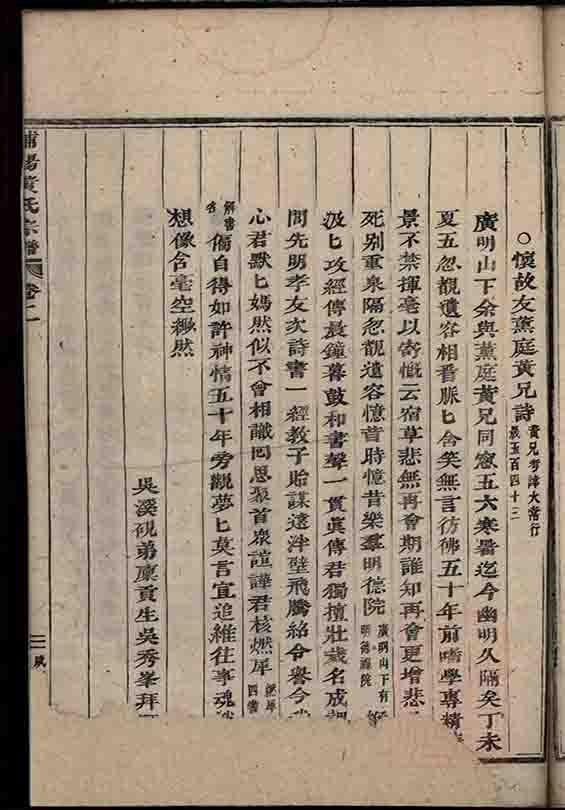 ○懷故友薰庭黃兄詩 黃兄考諱大常行晨五百四十三
廣明山下余與薰庭黃兄同窓五六寒暑迄今幽明久隔矣丁未
夏五忽覩遺容相看脈匕含笑無言彷彿五十年前嗜學專精
景不禁揮毫以寄慨云宿草悲無再會期誰知再會更增悲
死別重泉隔忽覩遺容憶昔時憶昔樂羣明德院 廣明山下有明德禪院
汲匕攻經傳晨鐘暮鼓和書聲一貫眞傳君獨擅壯歲名成
間先明孝友次詩書一經教子貽謀遠泮壁飛騰紹令譽今
心君默匕嫣然似不會相識囘思聚首衆諠譁君核燃犀 四書
解書名 備自得如許神情五十年旁觀夢匕莫言宜追維往事魂
想像含毫空緲然
吳溪硯弟廩貢生吳秀峯拜
浦陽黃氏宗譜 卷二